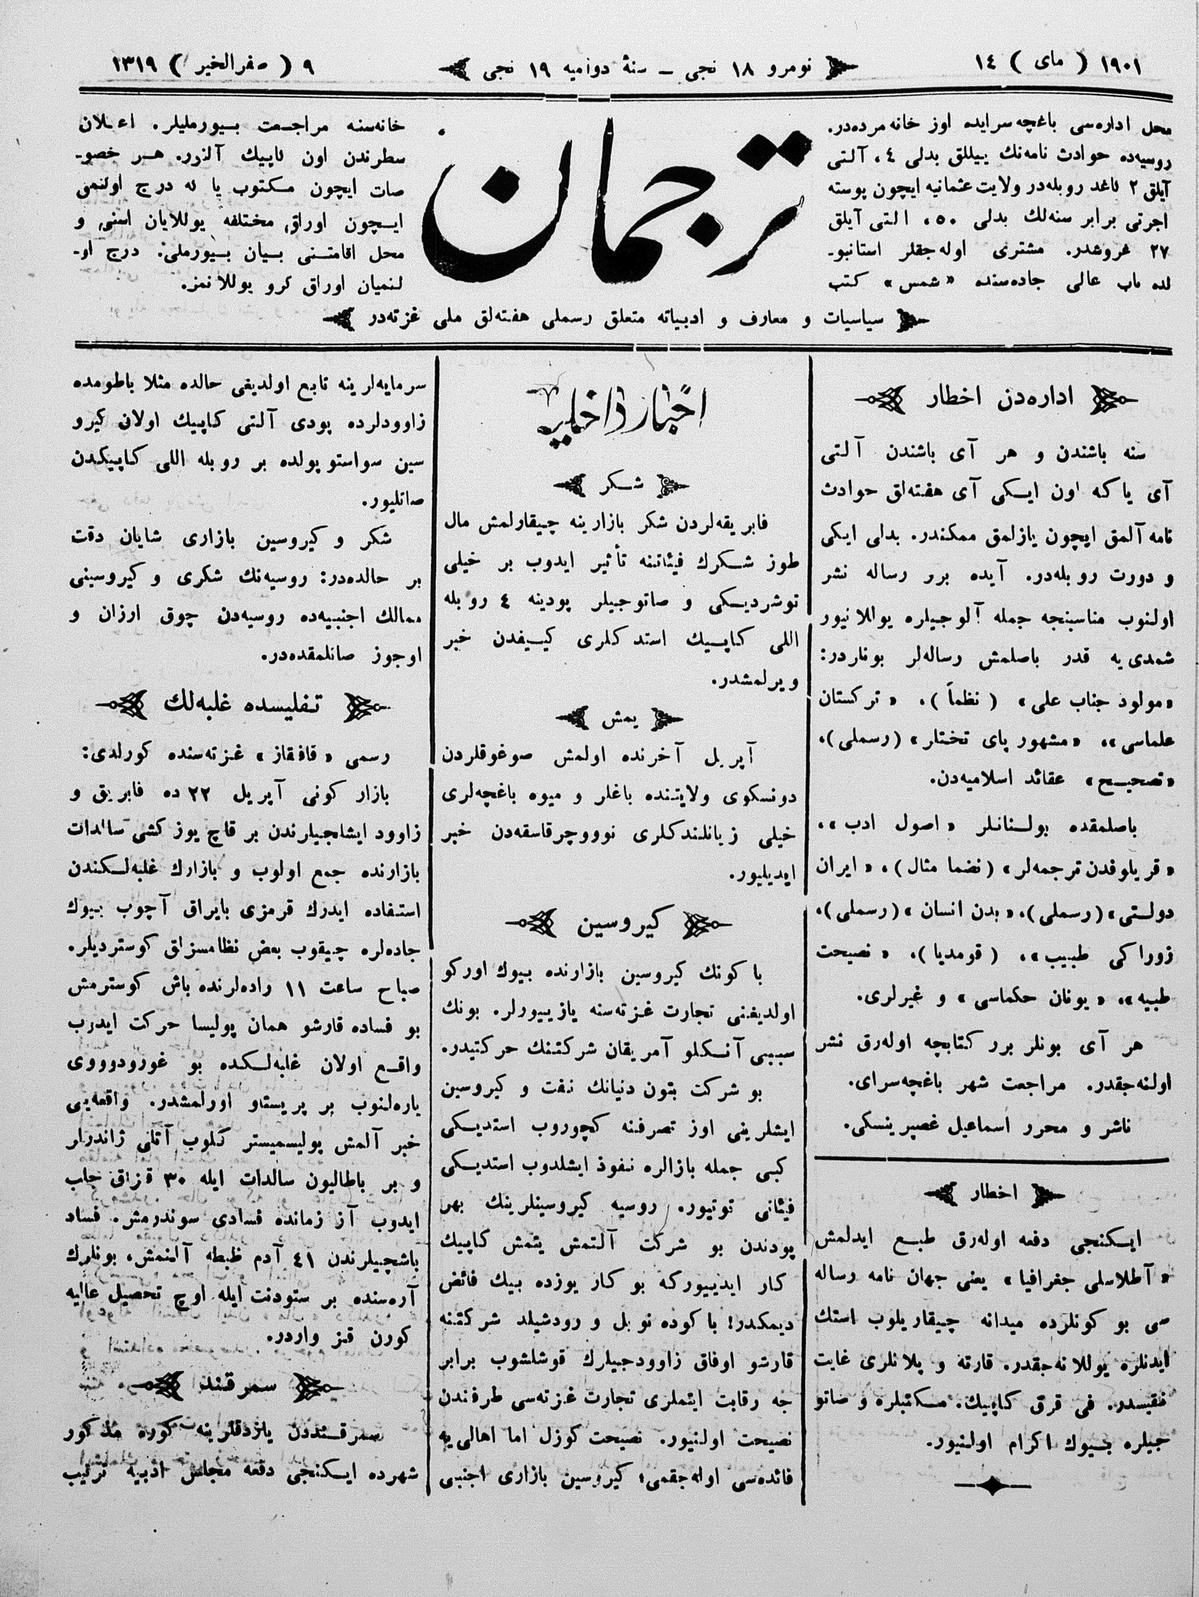 ١٩٠١ ( مای ) ١٤
نومرو ١٨ نجی – سنهٔ دوامیه ١٩ نجی
٩ ( صفر الخیر ) ١٣١٩
محل اداره‌سی باغچه‌سرایده اوز خانه مزده‌در.
روسیه‌ده حوادث نامه‌نك ییللق بدلی ٤، آلتی
آیلق ٢ كاغد روبله‌در ولایت عثمانیه ایچون پوسته
اجرتی برابر سنه‌لك بدلی ٥٠، التی آیلق
٢٧ غروشدر. مشتری اوله‌جقلر استانبو-
لده باب عالی جاده‌سنده «شمس» كتب
ترجمان
خانه‌سنه مراجعت بیورملیلر. اعلان
سطرندن اون كاپیك آلنور. هر خصو-
صات ایچون مكتوب یا كه درج اولنمی
ایچون اوراق مختلفه یوللایان اسنی و
محل اقامتنی بیان بیورملی. درج او-
لنمیان اوراق كرو یوللانمز.
سیاسیات و معارف و ادبیاته متعلق رسملی هفته‌لق ملی غزته‌در
اداره‌دن اخطار
سنه باشندن و هر آی باشندن آلتی
آی یا كه اون ایكی آی هفته‌لق حوادث
نامه آلمق ایچون یازلمق ممكندر. بدلی ایكی
و دورت روبله‌در. آیده برر رساله نشر
اولنوب مناسبنجه جمله آلوجیلره یوللانیور
شمدی‌یه قدر باصلمش رساله‌لر بونلردر:
«مولود جناب علی» (نظماً)، «تركستان
علماسی»، «مشهور پای تختلر» (رسملی)،
«تصحیح» عقائد اسلامیه‌دن.
باصلمقده بولنانلر «اصول ادب»،
«قریلوفدن ترجمه‌لر» (نضما مثال)، «ایران
دولتی» (رسملی)، «بدن انسان» (رسملی)،
زوراكی طبیب»، (قومدیا)، «نصیحت
طبیه»، «یونان حكماسی» و غیرلری.
هر آی بونلر برر كتابچه اوله‌رق نشر
اولنه‌جقدر. مراجعت شهر باغچه‌سرای.
ناشر و محرر اسماعیل غصپرینسكی.
اخطار
ایكنجی دفعه اوله‌رق طبع ایدلمش
«آطلاسلی جغرافیا» یعنی جهان نامه رساله
سی بو كونلرده میدانه چیقاریلوب استك
ایدنلره یوللانه‌جقدر. قارته و پلانلری غایت
نفیسدر. فی قرق كاپیك. مكتبلره و صاتو
جیلره بیوك اكرام اولنیور.
اخبار داخلیه
شكر
فابریقه‌لردن شكر بازارینه چیقارلمش مال
طوز شكرك فیئاتنه تأثیر ایدوب بر خیلی
توشردیكی و صاتوجیلر پودینه ٤ روبله
اللی كاپیك استدكلری كییفدن خبر
ویرلمشدر.
یمش
آپریل آخرنده اولمش صوغوقلردن
دونسكوی ولایتنده باغلر و میوه باغچه‌لری
خیلی زیانلندكلری نوووچرقاسقه‌دن خبر
ایدیلیور.
كیروسین
با كونك كیروسین بازارنده بیوك اوركو
اولدیغنی تجارت غزته‌سنه یازییورلر. بونك
سببی آنكلو آمریقان شركتنك حركتیدر.
بو شركت بتون دنیانك نفت و كیروسین
ایشلرینی اوز تصرفنه كچوروب استدیكی
كبی جمله بازالره نفوذ ایشلدوب استدیكی
فیئانی توتیور. روسیه كیروسینلرینك بهر
پودندن بو شركت آلتمش یتمش كاپیك
كار ایدییوركه بو كار یوزده بیك فائض
دیمكدر! باكوده نوبل و رودشیلد شركتنه
قارشو اوفاق زاوودجیلرك قوشلشوب برابر
جه رقابت ایتملری تجارت غزته‌سی طرفندن
نصیحت اولنیور. نصیحت كوزل اما اهالی‌یه
فائده‌سی اوله‌جقمی؛ كیروسین بازاری اجنبی
سرمایه‌لرینه تابع اولدیغی حالده مثلا باطومده
زاوودلرده پودی آلتی كاپیك اولان كیرو
سین سواستوپولده بر روبله اللی كاپیكدن
صاتلیور.
شكر و كیروسین بازاری شایان دقت
بر حالده‌در: روسیه‌نك شكری و كیروسینی
ممالك اجنبیه‌ده روسیه‌دن چوق ارزان و
اوجوز صاتلمقده‌در.
تفلیسده غلبه‌لك
رسمی «قافقاز» غزته‌سنده كورلدی:
بازار كونی آپریل ٢٢ ده فابریق و
زاوود ایشلجیلرندن بر قاچ یوز كشی سالدات
بازارنده جمع اولوب و بازارك غلبه‌لكندن
استفاده ایدرك قرمزی بایراق آچوب بیوك
جاده‌لره چیقوب بعض نظامسزلق كوستردیلر.
صباح ساعت ١١ راده‌لرنده باش كوسترمش
بو فساده قارشو همان پولیسا حركت ایدرب
واقع اولان غلبه‌لكده بو غورودوووی
یاره‌لنوب بر پریستاو اورلمشدر. واقعه‌یی
خبر آلمش پولیسمیستر كلوب آتلی ژاندرلر
و بر باطالیون سالدات ایله ٣٠ قزاق جلب
ایدوب آز زمانده فسادی سوندرمش. فساد
باشچیلرندن ٤١ آدم ظبطه آلنمش، بونلرك
آره‌سنده بر ستودنت ایله اوچ تحصیل عالیه
كورن قز واردر.
سمرقند
سمرقنددن یازدقلرینه كوره مذكور
شهرده ایكنجی دفعه مجلس ادبیه ترتیب